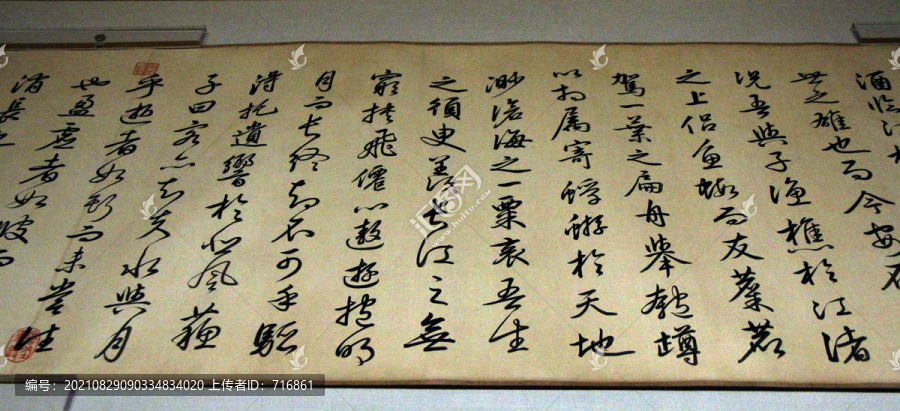 酒臨江
世之雄也而今安在
况吾與子漁樵於江渚
之上侣魚蝦而友麋鹿
駕一葉之扁舟舉匏樽
以相屬寄蜉蝣於天地
渺滄海之一粟哀吾生
之須臾羨長江之無
窮挟飛僊以遨遊抱明
月而長終知不可乎驟
得托遺響於悲風蘇
子曰客亦知夫水與月
乎逝者如斯而未嘗往
也盈虚者如彼而
消長
编号：20210829090334834020 上传者ID：716861